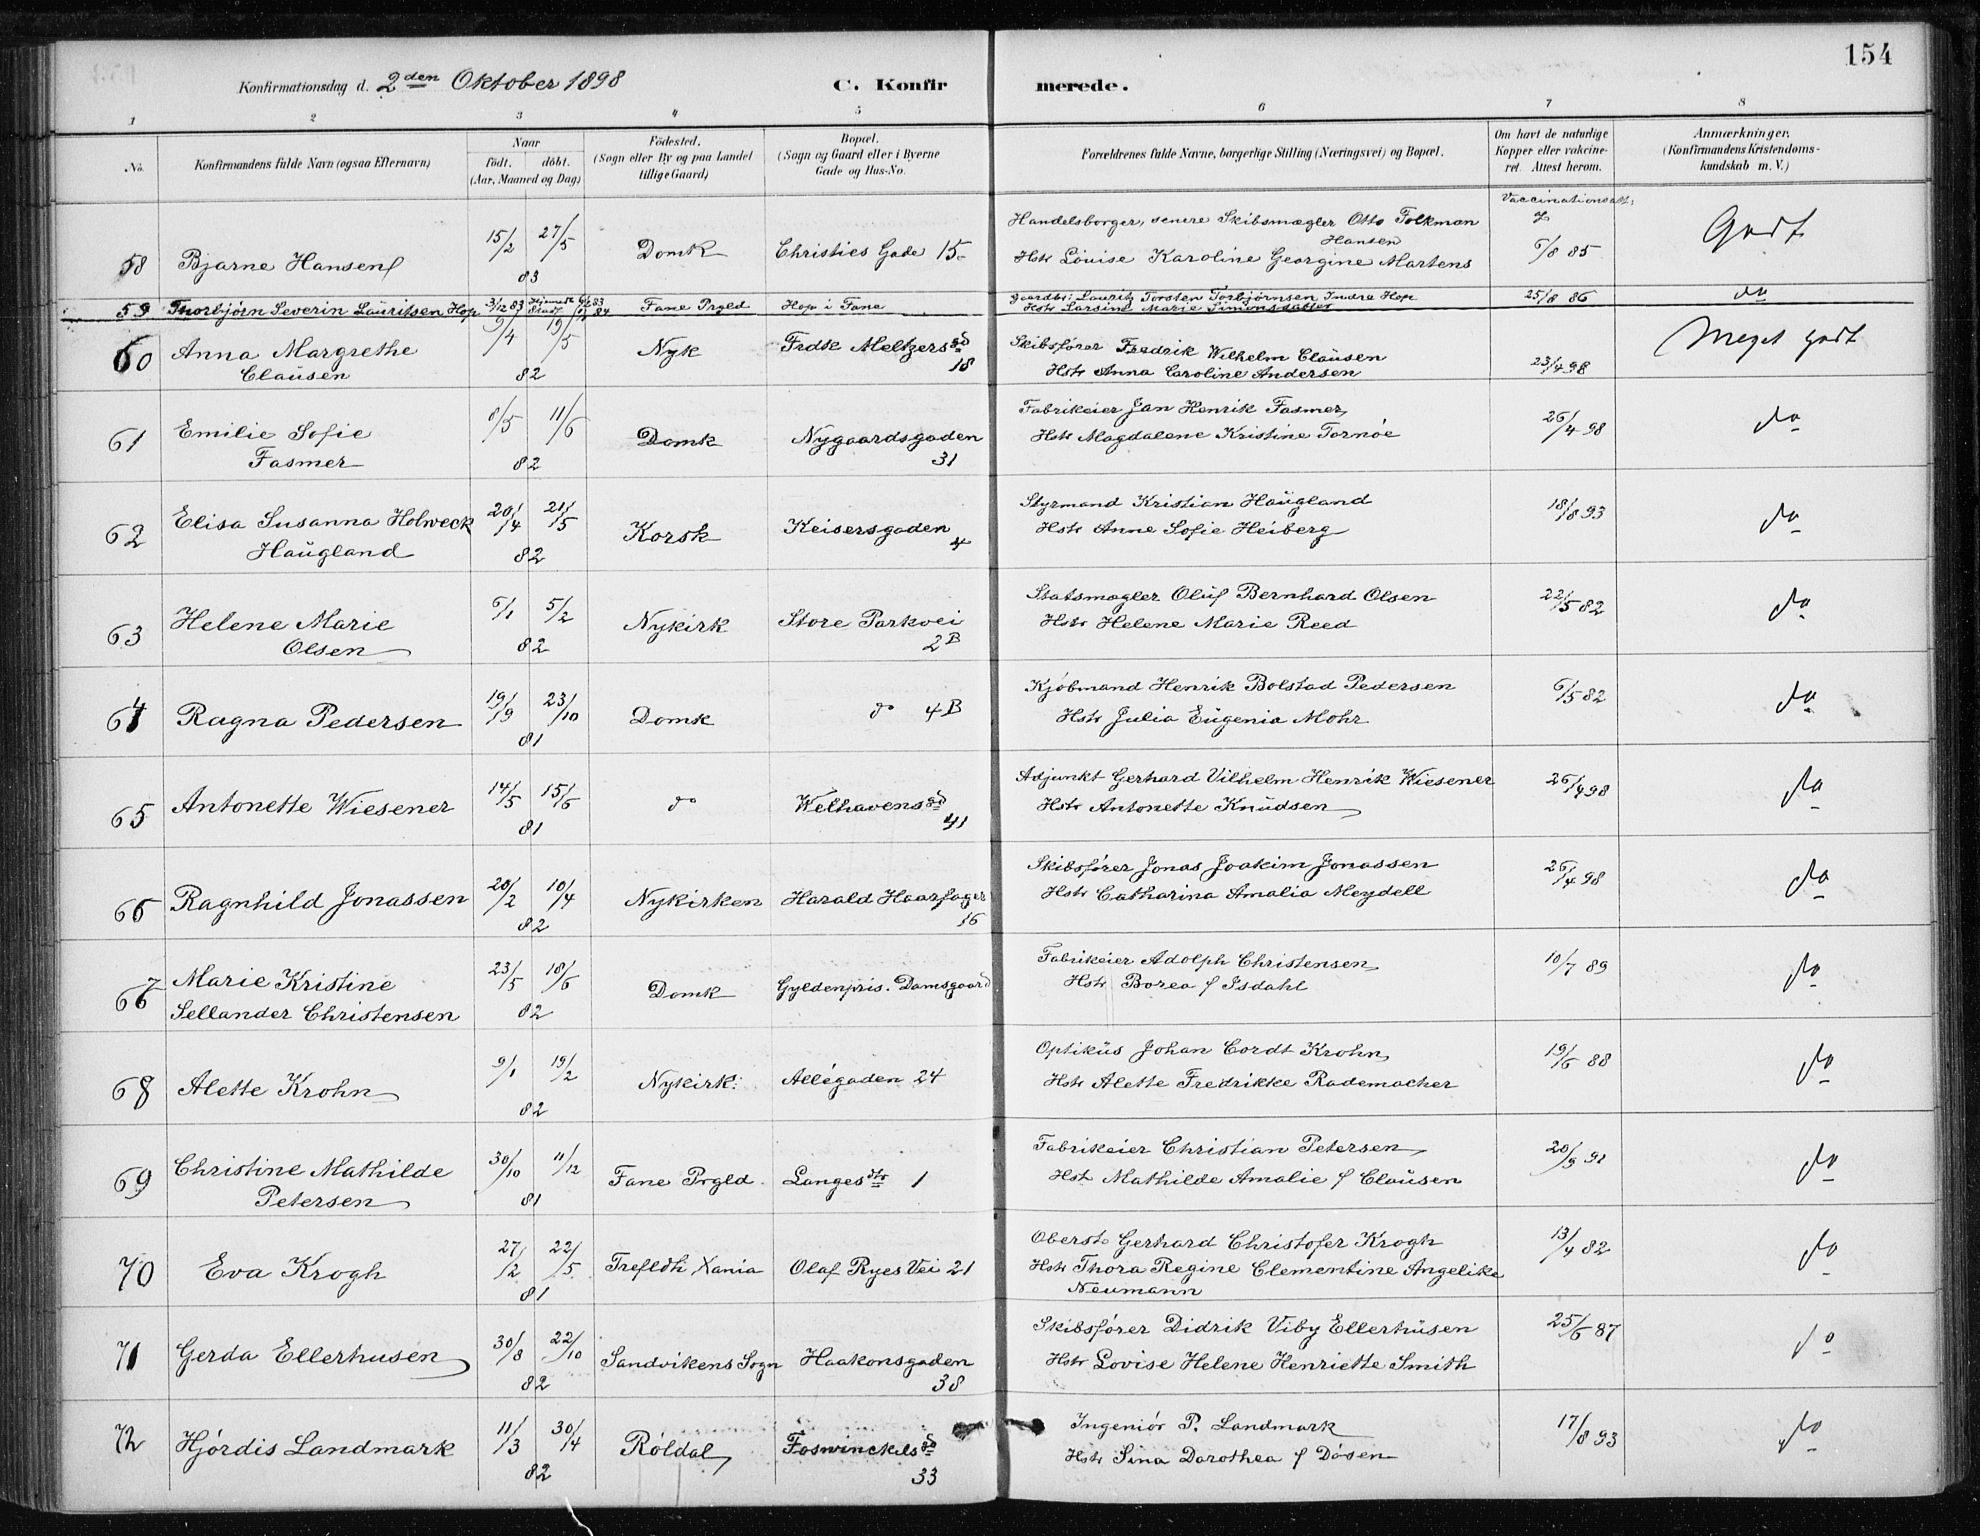 154
Konfirmationsdag d. 2den Oktober 1898 C. Konfirmerede.
1 2 3 4 5 6 7 8
No. Konfirmandens fulde Navn (ogsaa Efternavn) Naar født. døbt. (Aar, Maaned og Dag) Fødested. (Sogn eller By og paa Landet tillige Gaard) Bopæl. (Sogn og Gaard eller i Byerne Gade og Hus-No. Forældrenes fulde Navne, borgerlige Stilling (Næringsvei) og Bopæl. Om havt de naturlige Kopper eller vakcineret. Attest herom. Anmærkninger. (Konfirmandens Kristendomskundskab m. V.)
58 Bjarne Hansen 15/2 27/5 83 Domk Christies Gade 15 Handelsborger, senere Skibsmægler Otto Folkman Hansen
Hstr Lovise Karoline Georgine Martens 6/8 85 Godt
59 Thorbjørn Severin Lauritsen Hop 3/12 83 Fane Prgld Hop i Fane Gaardbr: Lauritz Torsten Torbjørnsen Indre Hop
Hstr Larsine Marie Simonsdatter 25/8 86 do
60 Anna Margrethe Clausen 9/4 19/5 82 Nyk Frdk Meltzers gd 18 Skibsfører Fredrik Wilhelm Clausen
Hstr Anna Caroline Andersen 23/4 98 Meget godt
61 Emilie Sofie Fasmer 8/5 11/6 82 Domk Nygaardsgaden 31 Fabrikeier Jan Henrik Fasmer
Hstr Magdalene Kristine Tornøe 26/4 98 do
62 Elisa Susanna Holweck Haugland 20/4 21/5 82 Korsk Keisersgaden 4 Styrmand Kristian Haugland
Hstr Anne Sofie Heiberg 18/8 93 do
63 Helene Marie Olsen 6/1 5/2 82 Nykirk Store Parkvei 2B Statsmægler Oluf Bernhard Olsen
Hstr Helene Marie Reed 22/5 82 do
64 Ragna Pedersen 19/9 23/10 81 Domk do 4B Kjøbmand Henrik Bolstad Pedersen
Hstr Julia Eugenia Mohr 6/5 82 do
65 Antonette Wiesener 14/5 15/6 81 do Welhavens gd 41 Adjunkt Gerhard Vilhelm Henrik Wiesener
Hstr Antonette Knudsen 26/4 98 do
66 Ragnhild Jonassen 20/2 10/4 82 Nykirken Harald Haarfager 16 Skibsfører Jonas Joakim Jonassen
Hstr Catharina Amalia Meydell 26/4 98 do
67 Marie Kristine Sellander Christensen 23/5 18/6 82 Domk Gyldenpris. Damsgaard Fabrikeier Adolph Christensen
Hstr Borea f Isdahl 10/7 89 do
68 Alette Krohn 9/1 19/2 82 Nykirk: Allégaden 24 Optikus Johan Cordt Krohn
Hstr Alette Fredrikke Rademacher 19/6 88 do
69 Christine Mathilde Petersen 30/10 11/12 81 Fane Prgld. Langes str 1 Fabrikeier Christian Petersen
Hstr Mathilde Amalie f Clausen 20/9 91 do
70 Eva Krogh 27/2 22/5 81 Trefldh Xania Olaf Ryes Vei 21 Oberst Gerhard Christofer Krogh
Hstr Thora Regine Clementine Angelike Neumann 13/4 82 do
71 Gerda Ellerhusen 30/8 22/10 82 Sandvikens Sogn Haakonsgaden 38 Skibsfører Didrik Viby Ellerhusen
Hstr Lovise Helene Henriette Smith 25/6 87 do
72 Hjørdis Landmark 11/3 30/4 82 Røldal Foswinckels gd 33 Ingeniør P. Landmark
Hstr Sina Dorothea f Døsen 17/8 93 do